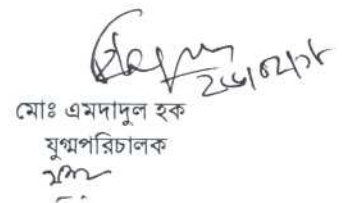 ২৬/০২/১৮
মোঃ এমদাদুল হক
যুগ্মপরিচালক